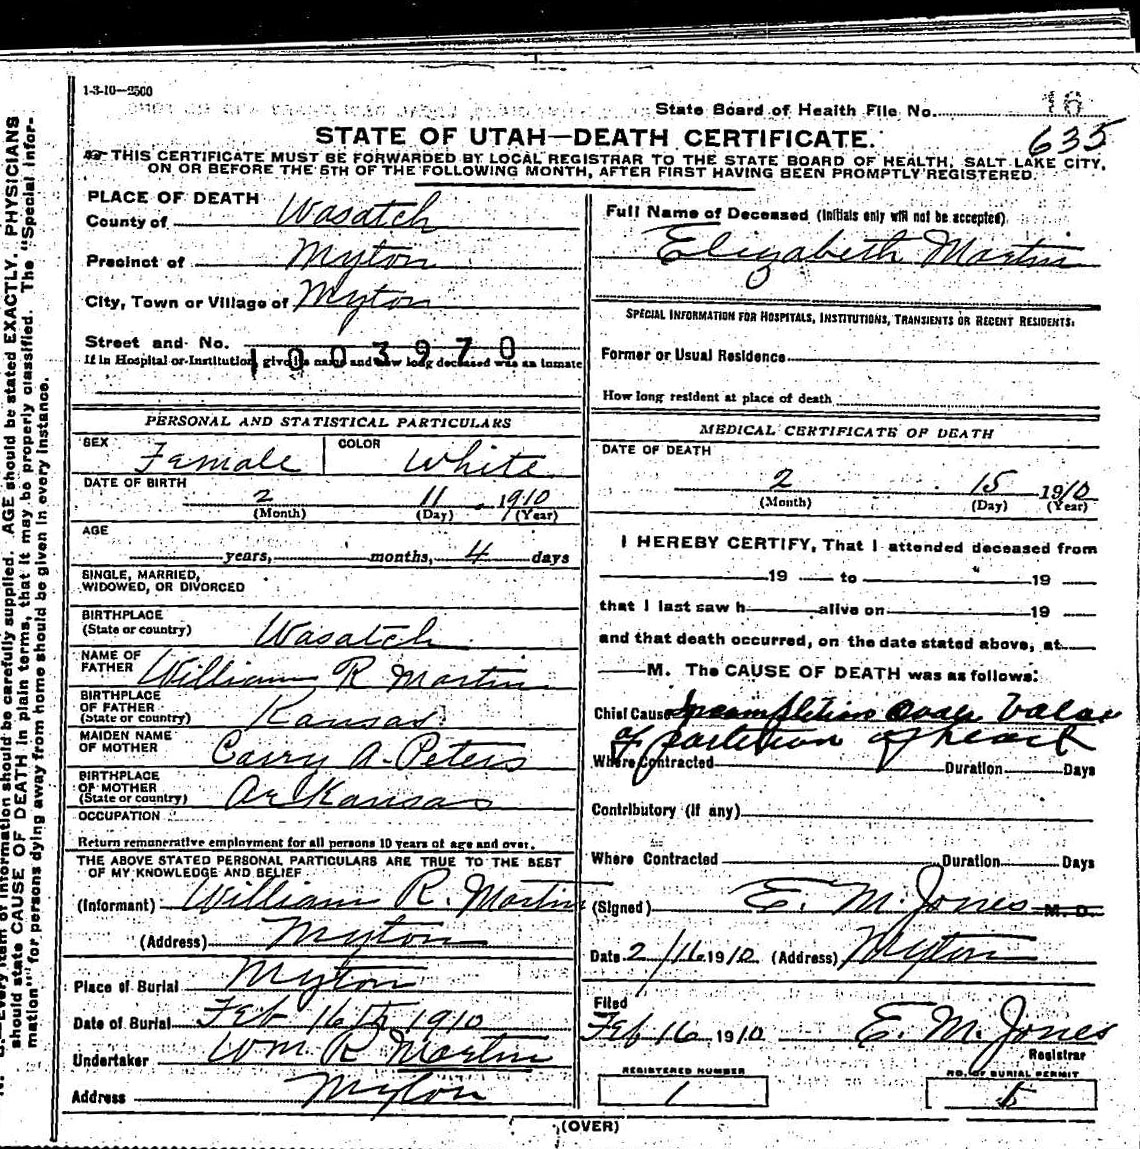 1-3-10—2500
State Board of Health File No. 16
635
STATE OF UTAH—DEATH CERTIFICATE.
THIS CERTIFICATE MUST BE FORWARDED BY LOCAL REGISTRAR TO THE STATE BOARD OF HEALTH, SALT LAKE CITY,
ON OR BEFORE THE 5TH OF THE FOLLOWING MONTH, AFTER FIRST HAVING BEEN PROMPTLY REGISTERED.
PLACE OF DEATH
County of Wasatch
Precinct of Myton
City, Town or Village of Myton
Street and No.
1003970
If in Hospital or Institution, give its name and how long deceased was an inmate
PERSONAL AND STATISTICAL PARTICULARS
SEX Female COLOR White
DATE OF BIRTH
2 11 1910
(Month) (Day) (Year)
AGE
years, months, 4 days
SINGLE, MARRIED,
WIDOWED, OR DIVORCED
BIRTHPLACE
(State or country) Wasatch
NAME OF
FATHER William R Martin
BIRTHPLACE
OF FATHER
(State or country) Kansas
MAIDEN NAME
OF MOTHER Carry A. Peters
BIRTHPLACE
OF MOTHER
(State or country) Arkansas
OCCUPATION
Return remunerative employment for all persons 10 years of age and over.
THE ABOVE STATED PERSONAL PARTICULARS ARE TRUE TO THE BEST
OF MY KNOWLEDGE AND BELIEF
(Informant) William R. Martin
(Address) Myton
Place of Burial Myton
Date of Burial Feb 16th 1910
Undertaker Wm. R Martin
Address Myton
Full Name of Deceased (Initials only will not be accepted)
Elizabeth Martin
SPECIAL INFORMATION FOR HOSPITALS, INSTITUTIONS, TRANSIENTS OR RECENT RESIDENTS:
Former or Usual Residence
How long resident at place of death
MEDICAL CERTIFICATE OF DEATH
DATE OF DEATH
2 15 1910
(Month) (Day) (Year)
I HEREBY CERTIFY, That I attended deceased from
19 to 19
that I last saw h alive on 19
and that death occurred, on the date stated above, at
M. The CAUSE OF DEATH was as follows:
Chief Cause
of partition of heart
Where Contracted Duration Days
Contributory (if any)
Where Contracted Duration Days
(Signed) E. M. Jones M. D.
Date 2/16 1910 (Address) Myton
Filed
Feb 16 1910 E. M. Jones
Registrar
REGISTERED NUMBER
1
NO. OF BURIAL PERMIT
(OVER)
Every item of information should be carefully supplied. AGE should be stated EXACTLY. PHYSICIANS
should state CAUSE OF DEATH in plain terms, that it may be properly classified. The "Special Infor-
mation" for persons dying away from home should be given in every instance.